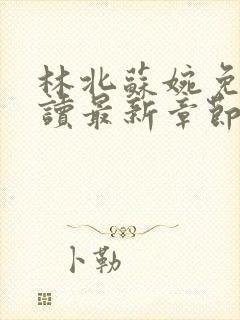 林北蘇婉免
讀最新章節
卜勒